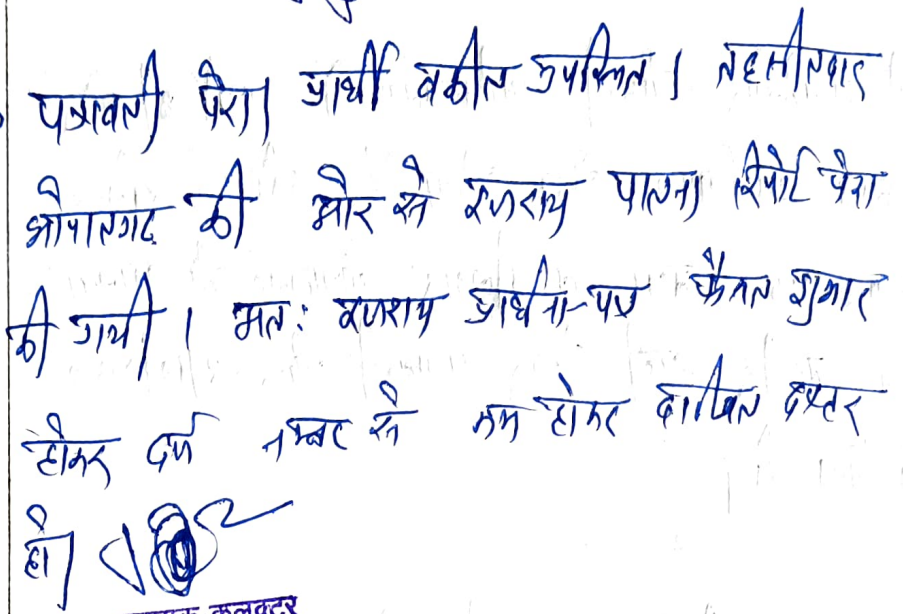 पत्रावली पेश। प्रार्थी वकील उपस्थित। तहसीलदार
भोपालगढ़ की ओर से इजराय पालना रिपोर्ट पेश
की गयी। अतः इजराय प्रार्थना-पत्र फैसल शुमार
होकर दर्ज नम्बर से कम होकर दाखिल दफ्तर
हो।
कलक्टर